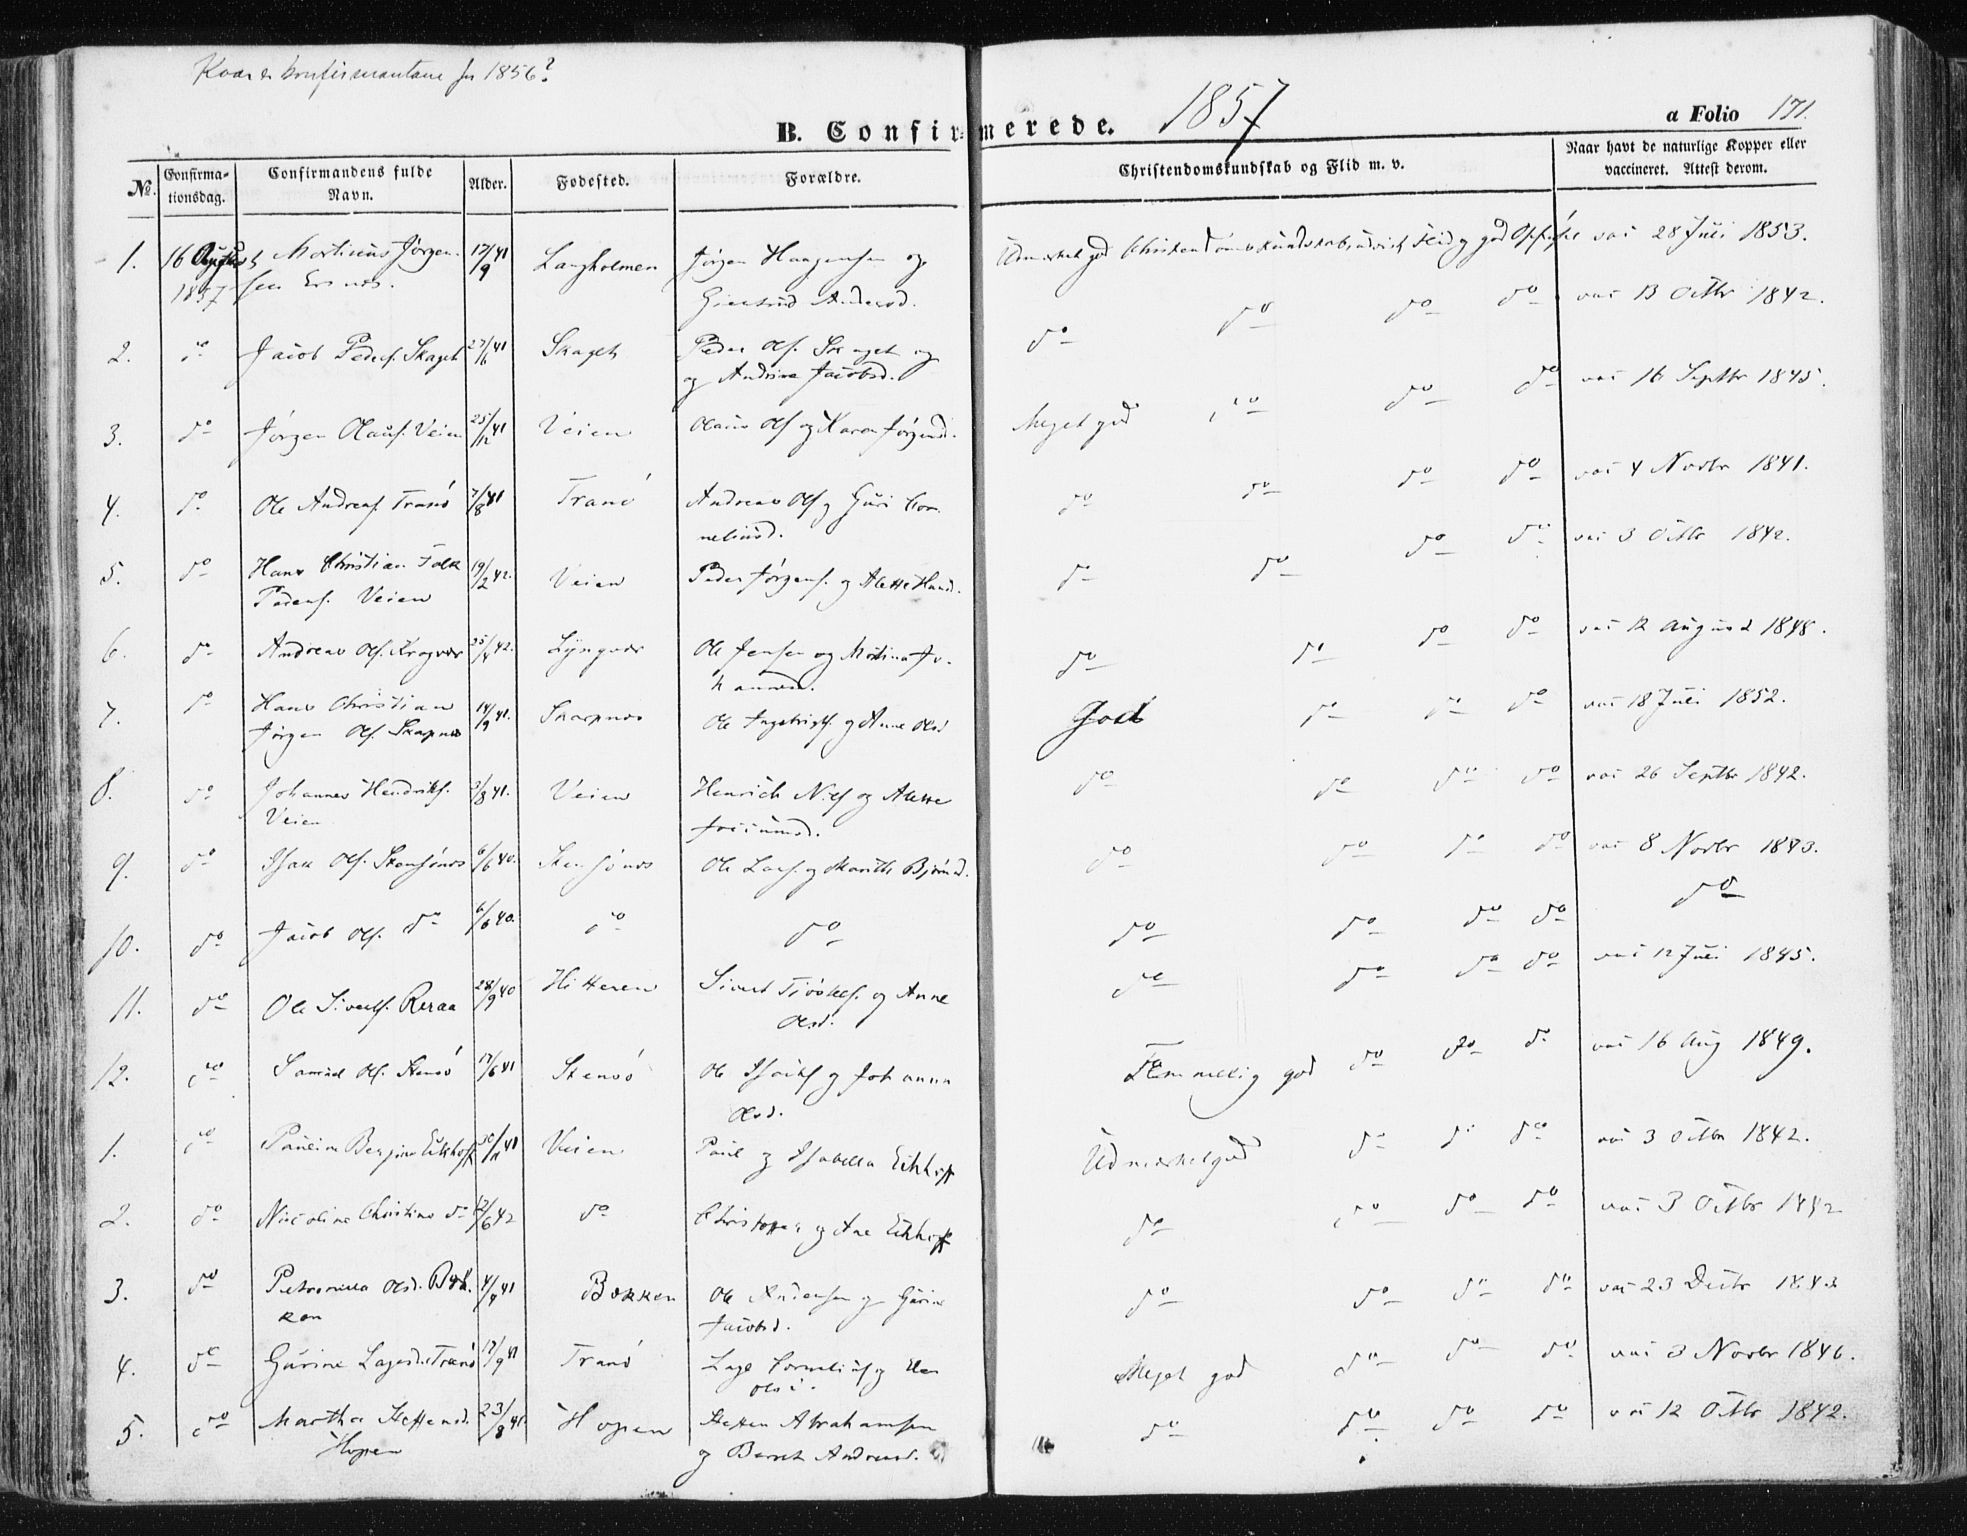 Kvar er konfirmantane for 1856?
B. Confirmerede.
1857
a Folio 171.
No.
Confirma-
tionsdag.
Confirmandens fulde
Navn.
Alder.
Fødested.
Forældre.
Christendomskundskab og Flid m. v.
Naar havt de naturlige Kopper eller
vaccineret. Attest derom.
1. 16 August Mortinus Jørgen- 17/9 41 Langholmen Jørgen Haagensen og Udmærket god Christendomskundskab, Flid og god Opførsel vac 28 Juli 1853.
1857 sen
Giertrud Andersd.
2. do Jacob Peders. Skaget 27/6 41 Skaget Peder Ols. Skaget og do do do do vac 13 Octbr 1842.
og Andrine Jacobsd.
3. do Jørgen Olaus. Veien 25/12 41 Veien Olaus Ols og Karen Jørgensd. Meget god do do do vac 16 Septbr 1845.
4. do Ole Andreas. Tranø 7/8 41 Tranø Andreas Ols og Guri Cor- do do do do vac 4 Novbr 1841.
neliusd.
5. do Hans Christian Falk 19/2 42. Veien Peder Jørgens. og Alette Hansd. do do do do vac 3 Octbr 1842.
Peders. Veien
6. do Andreas Ols. Kragvær 25/4 42. Lyngvær Ole Jensen og Martina Jo- do do do do vac 12 August 1848.
hannesd.
7. do Hans Christian 14/9 41. Skarpnes Ole Ingebrigts. og Anne Olsd God do do do vac 18 Juli 1852.
Jørgen Ols. Skarpnes
8. do Johannes Hendriks. 3/8 41. Veien Henrich Nils og Alette do do do do vac 26 Septbr 1842.
Veien
9. do Isak Ols. Stensønes 6/6 40. Stensønes Ole Lars. og Marith Bjørnsd. do do do do vac 8 Novbr 1843.
10. do Jacob Ols. do 6/6 40. do do do do do do do
11. do Ole Siverts. Reraa 28/9 40 Hitteren Sivert og Anne do do do do vac 12 Juli 1845.
Olsd.
12. do Samuel Ols. Stensø 17/6 41 Stensø Ole Isaks og Johanna Temmelig god do do do vac 16 Aug 1849.
Olsd.
1. do Pauline Bergine Eikhoff 41 Veien Paul og Isabella Eikhoff Udmærket god do do do vac 3 Octbr 1842.
2. do Nicoline Christine do 12/6 42 do Christopher og Ane Eikhoff do do do do vac 3 Octbr 1842
3. do Petronilla Olsd. Bæk- 4/9 41 Bækken Ole Andersen og Gurine do do do do vac 23 Decbr 1843
ken
Jacobsd.
4. do Gurine Lagesd. Tranø 17/9 41 Tranø Lage Cornelius og Elen Meget god do do do vac 3 Novbr 1846.
Olsd.
5. do Martha Steffensd. 23/8 41. Hopen Steffen Abrahamsen do do do do vac 12 Octbr 1842.
Hopen
og Bereth Andreasd.